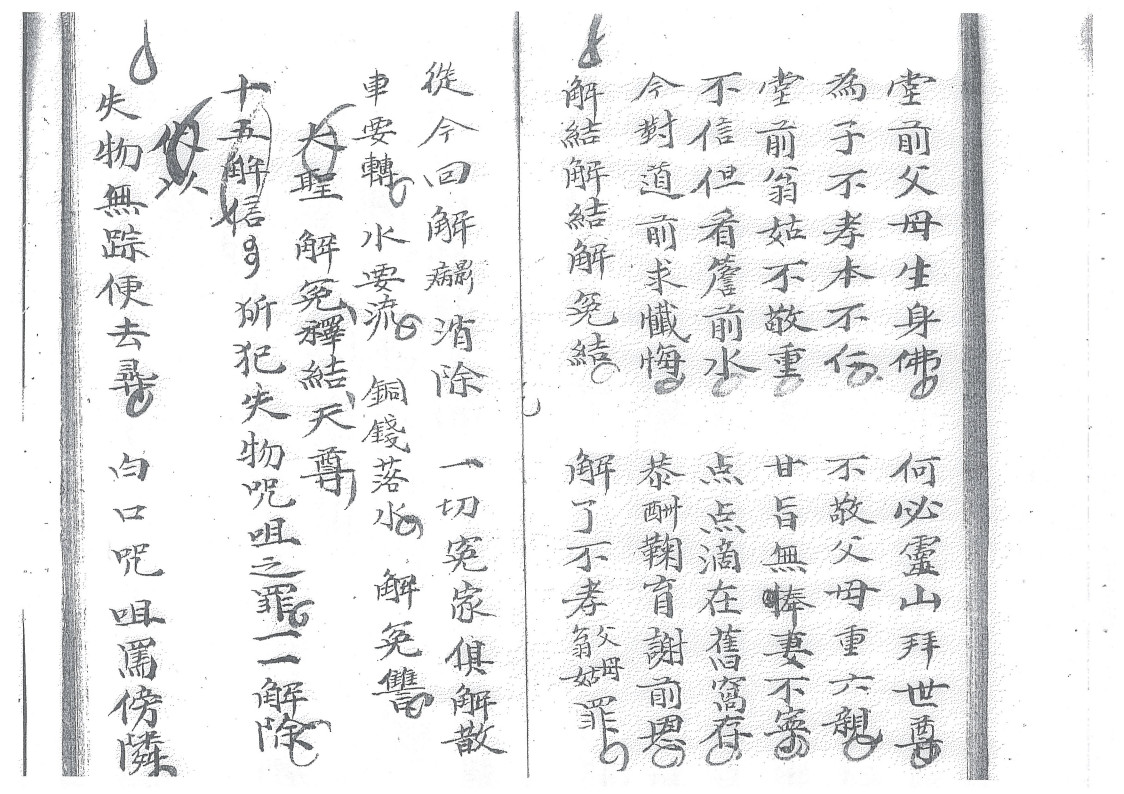 堂前父母生身佛 何必靈山拜世尊
為子不孝本不仁 不敬父母重六親
堂前翁姑不敬重 甘旨無捧妻不寧
不信但看簷前水 点点滴在舊窩存
今對道前求懺悔 恭酬鞠育謝前恩
解結解結解冤結 解了不孝父母翁姑罪
從今回解消除 一切冤家俱解散
車要轉 水要流 銅錢落水 解冤讐
大聖 解冤釋結天尊
十五解信 所犯失物咒咀之罪一一解除
伏以
失物無踪便去尋 白口咒咀罵傍隣